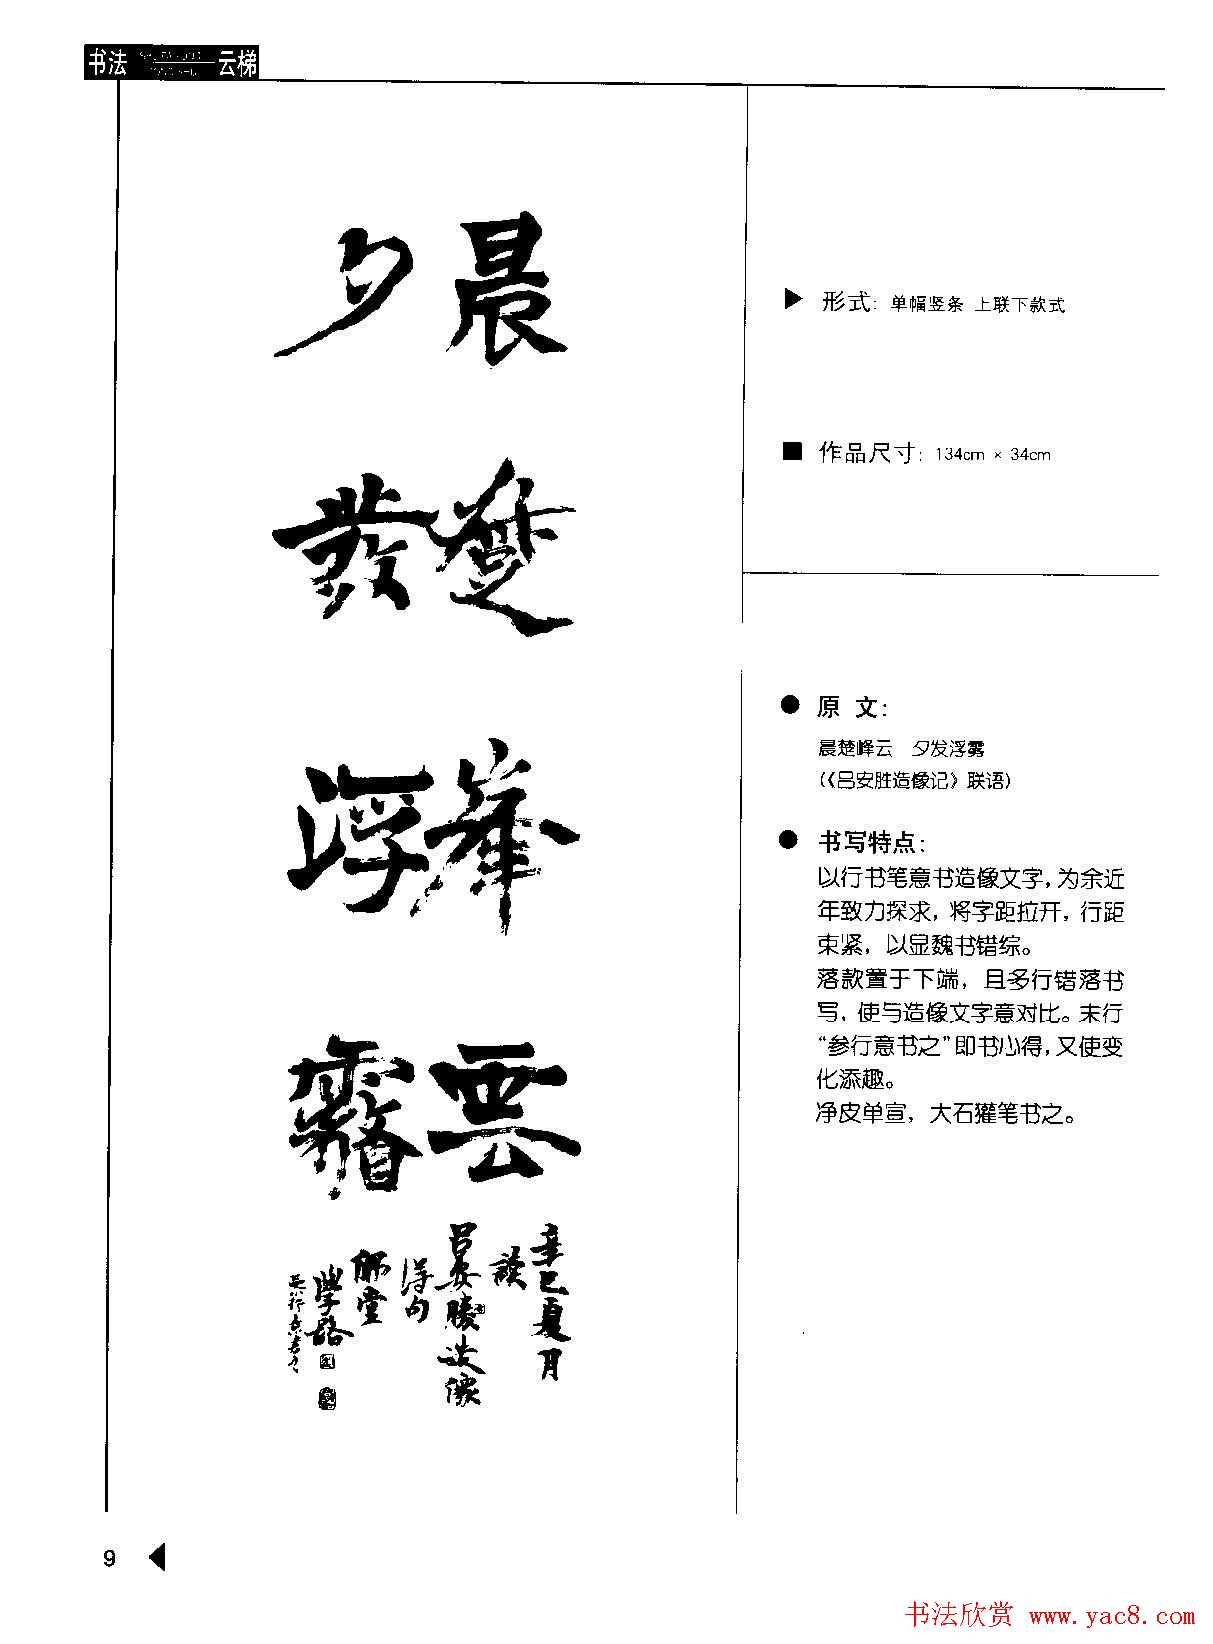 书法 云梯
晨楚峯雲
夕發浮霧
辛巳夏月
讀
吕安勝造像
得句
佛堂
學路
参行意書之
▶ 形式: 单幅竖条 上联下款式
■ 作品尺寸: 134cm × 34cm
● 原 文:
晨楚峰云 夕发浮雾
(《吕安胜造像记》联语)
● 书写特点:
以行书笔意书造像文字,为余近
年致力探求,将字距拉开,行距
束紧,以显魏书错综。
落款置于下端,且多行错落书
写,使与造像文字意对比。末行
“参行意书之”即书心得,又使变
化添趣。
净皮单宣,大石獾笔书之。
9
书法欣赏 www.yac8.com